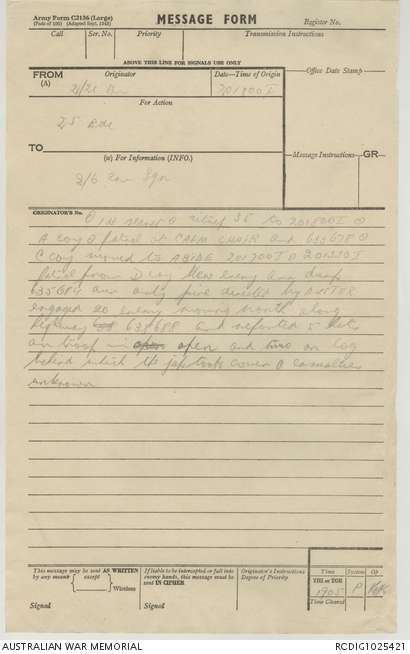 Army Form C2136 (Large)
(Pads of 100) (Adapted Sept. 1942)
MESSAGE FORM
Register No.
Call
Ser. No.
Priority
Transmission Instructions
ABOVE THIS LINE FOR SIGNALS USE ONLY
FROM
(A)
Originator
Date—Time of Origin
Office Date Stamp
201800 I
For Action
25 Bde
TO
(w) For Information (INFO.)
Message Instructions
GR
ORIGINATOR'S No.
to 201800I
A coy patrol at CALM CHAIR and 635678
C coy moved to ABIDE 201700I 201330I
patrol from D coy enemy dump
635684 fire directed by
engaged 20 enemy moving North along
highway 638688 and reported 5
in open open and two on log
behind which the japs took cover casualties
unknown
This message may be sent AS WRITTEN
by any means except
Wireless
Signed
If liable to be intercepted or fall into
enemy hands, this message must be
sent IN CIPHER.
Signed
Originator's Instructions
Degree of Priority
Time
System
Op
THI or TOR
1905
P
Time Cleared
AUSTRALIAN WAR MEMORIAL
RCDIG1025421